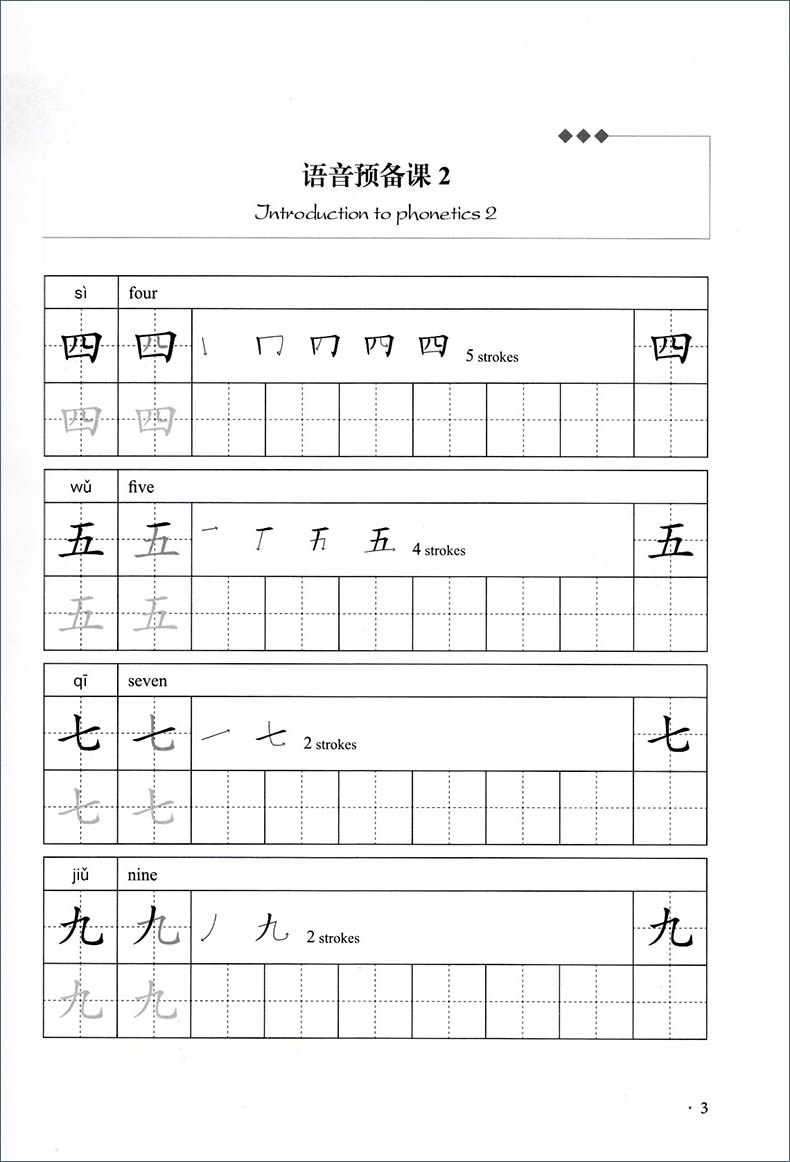 语音预备课 2
Introduction to phonetics 2
sì four
四 四 5 strokes 四
四 四
wǔ five
五 五 4 strokes 五
五 五
qī seven
七 七 一 七 2 strokes 七
七 七
jiǔ nine
九 九 丿 九 2 strokes 九
九 九
· 3